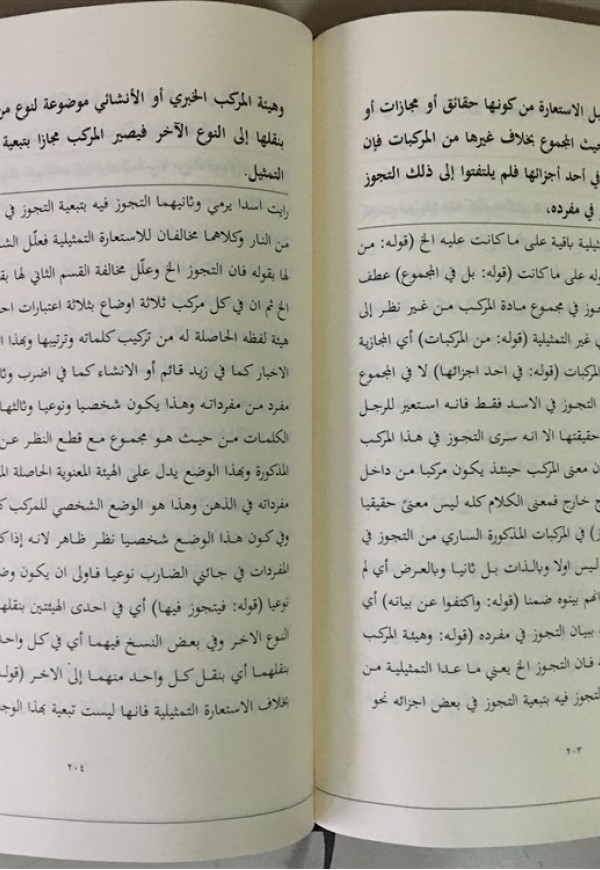 يل الاستعارة من كونها حقائق أو مجازات أو
حيث المجموع بخلاف غيرها من المركبات فإن
في أحد أجزائها فلم يلتفتوا إلى ذلك التجوز
في مفرده،
ثيلية باقية على ما كانت عليه الخ (قوله: من
وله على ما كانت (قوله: بل في المجموع) عطف
جوز في مجموع مادة المركب من غير نظر إلى
ي غير التمثيلية (قوله: من المركبات) أي المجازية
المركبات (قوله: في احد اجزائها) لا في المجموع
التجوز في الاسد فقط فانه استعير للرجل
حقيقتها الا انه سرى التجوز في هذا المركب
ان معنى المركب حينئذ يكون مركبا من داخل
ج خارج فمعنى الكلام كله ليس معنىً حقيقيا
ز) في المركبات المذكورة الساري من التجوز في
ليس اولا وبالذات بل ثانيا وبالعرض أي لم
انهم بينوه ضمنا (قوله: واكتفوا عن بيانه) أي
ببيان التجوز في مفرده (قوله: وهيئة المركب
ه فان التجوز الخ يعني ما عدا التمثيلية من
التجوز فيه بتبعية التجوز في بعض اجزائه نحو
٢٠٣
وهيئة المركب الخبري أو الأنشائي موضوعة لنوع من
بنقلها إلى النوع الآخر فيصير المركب مجازا بتبعية
التمثيل.
رايت اسدا يرمي وثانيهما التجوز فيه بتبعية التجوز في
من النار وكلاهما مخالفان للاستعارة التمثيلية فعلّل الش
لها بقوله فان التجوز الخ وعلّل مخالفة القسم الثاني لها بق
الخ ثم ان في كل مركب ثلاثة اوضاع بثلاثة اعتبارات احد
هيئة لفظه الحاصلة له من تركيب كلماته وترتيبها وبهذا ا
الاخبار كما في زيد قائم أو الانشاء كما في اضرب وثا
مفرد من مفرداته وهذا يكون شخصيا ونوعيا وثالثها
الكلمات من حيث هو مجموع مع قطع النظر عن
المذكورة وبهذا الوضع يدل على الهيئة المعنوية الحاصلة الم
مفرداته في الذهن وهذا هو الوضع الشخصي للمركب ك
وفي كون هذا الوضع شخصيا نظر ظاهر لانه إذا كا
المفردات في جائني الضارب نوعيا فاولى ان يكون وض
نوعيا (قوله: فيتجوز فيها) أي في احدى الهيئتين بنقلها
النوع الاخر وفي بعض النسخ فيهما أي في كل واحد
بنقلهما أي بنقل كل واحد منهما إلى الاخر (قول
بخلاف الاستعارة التمثيلية فانها ليست تبعية بهذا الوج
٢٠٤